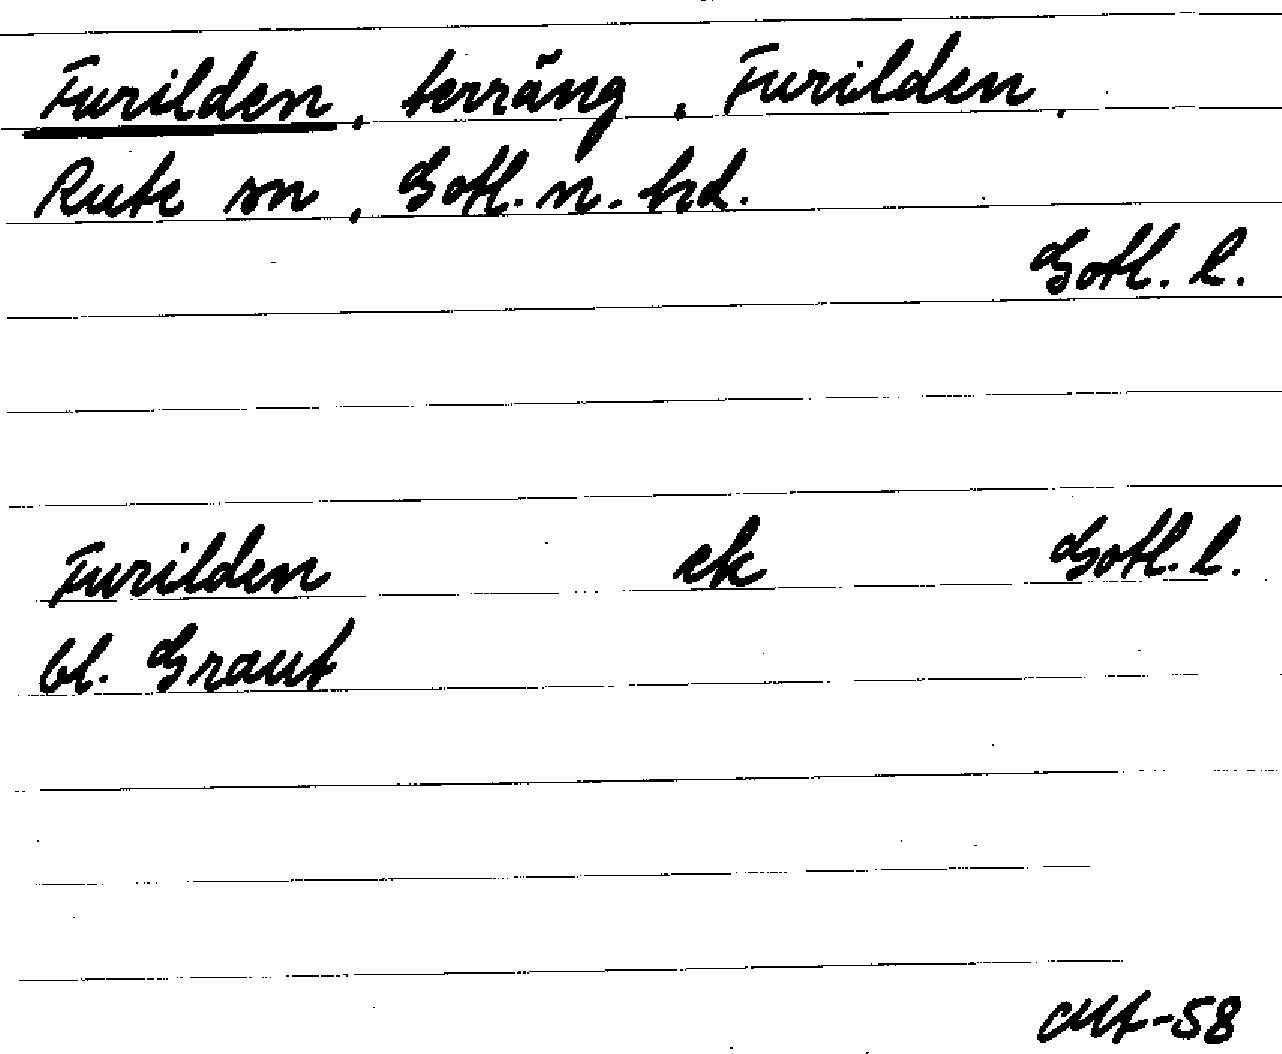 Furilden, terräng, Furilden,
Rute sn, Gotl. n. hd.
Gotl. l.
Furilden ek Gotl. l.
bl. Graut